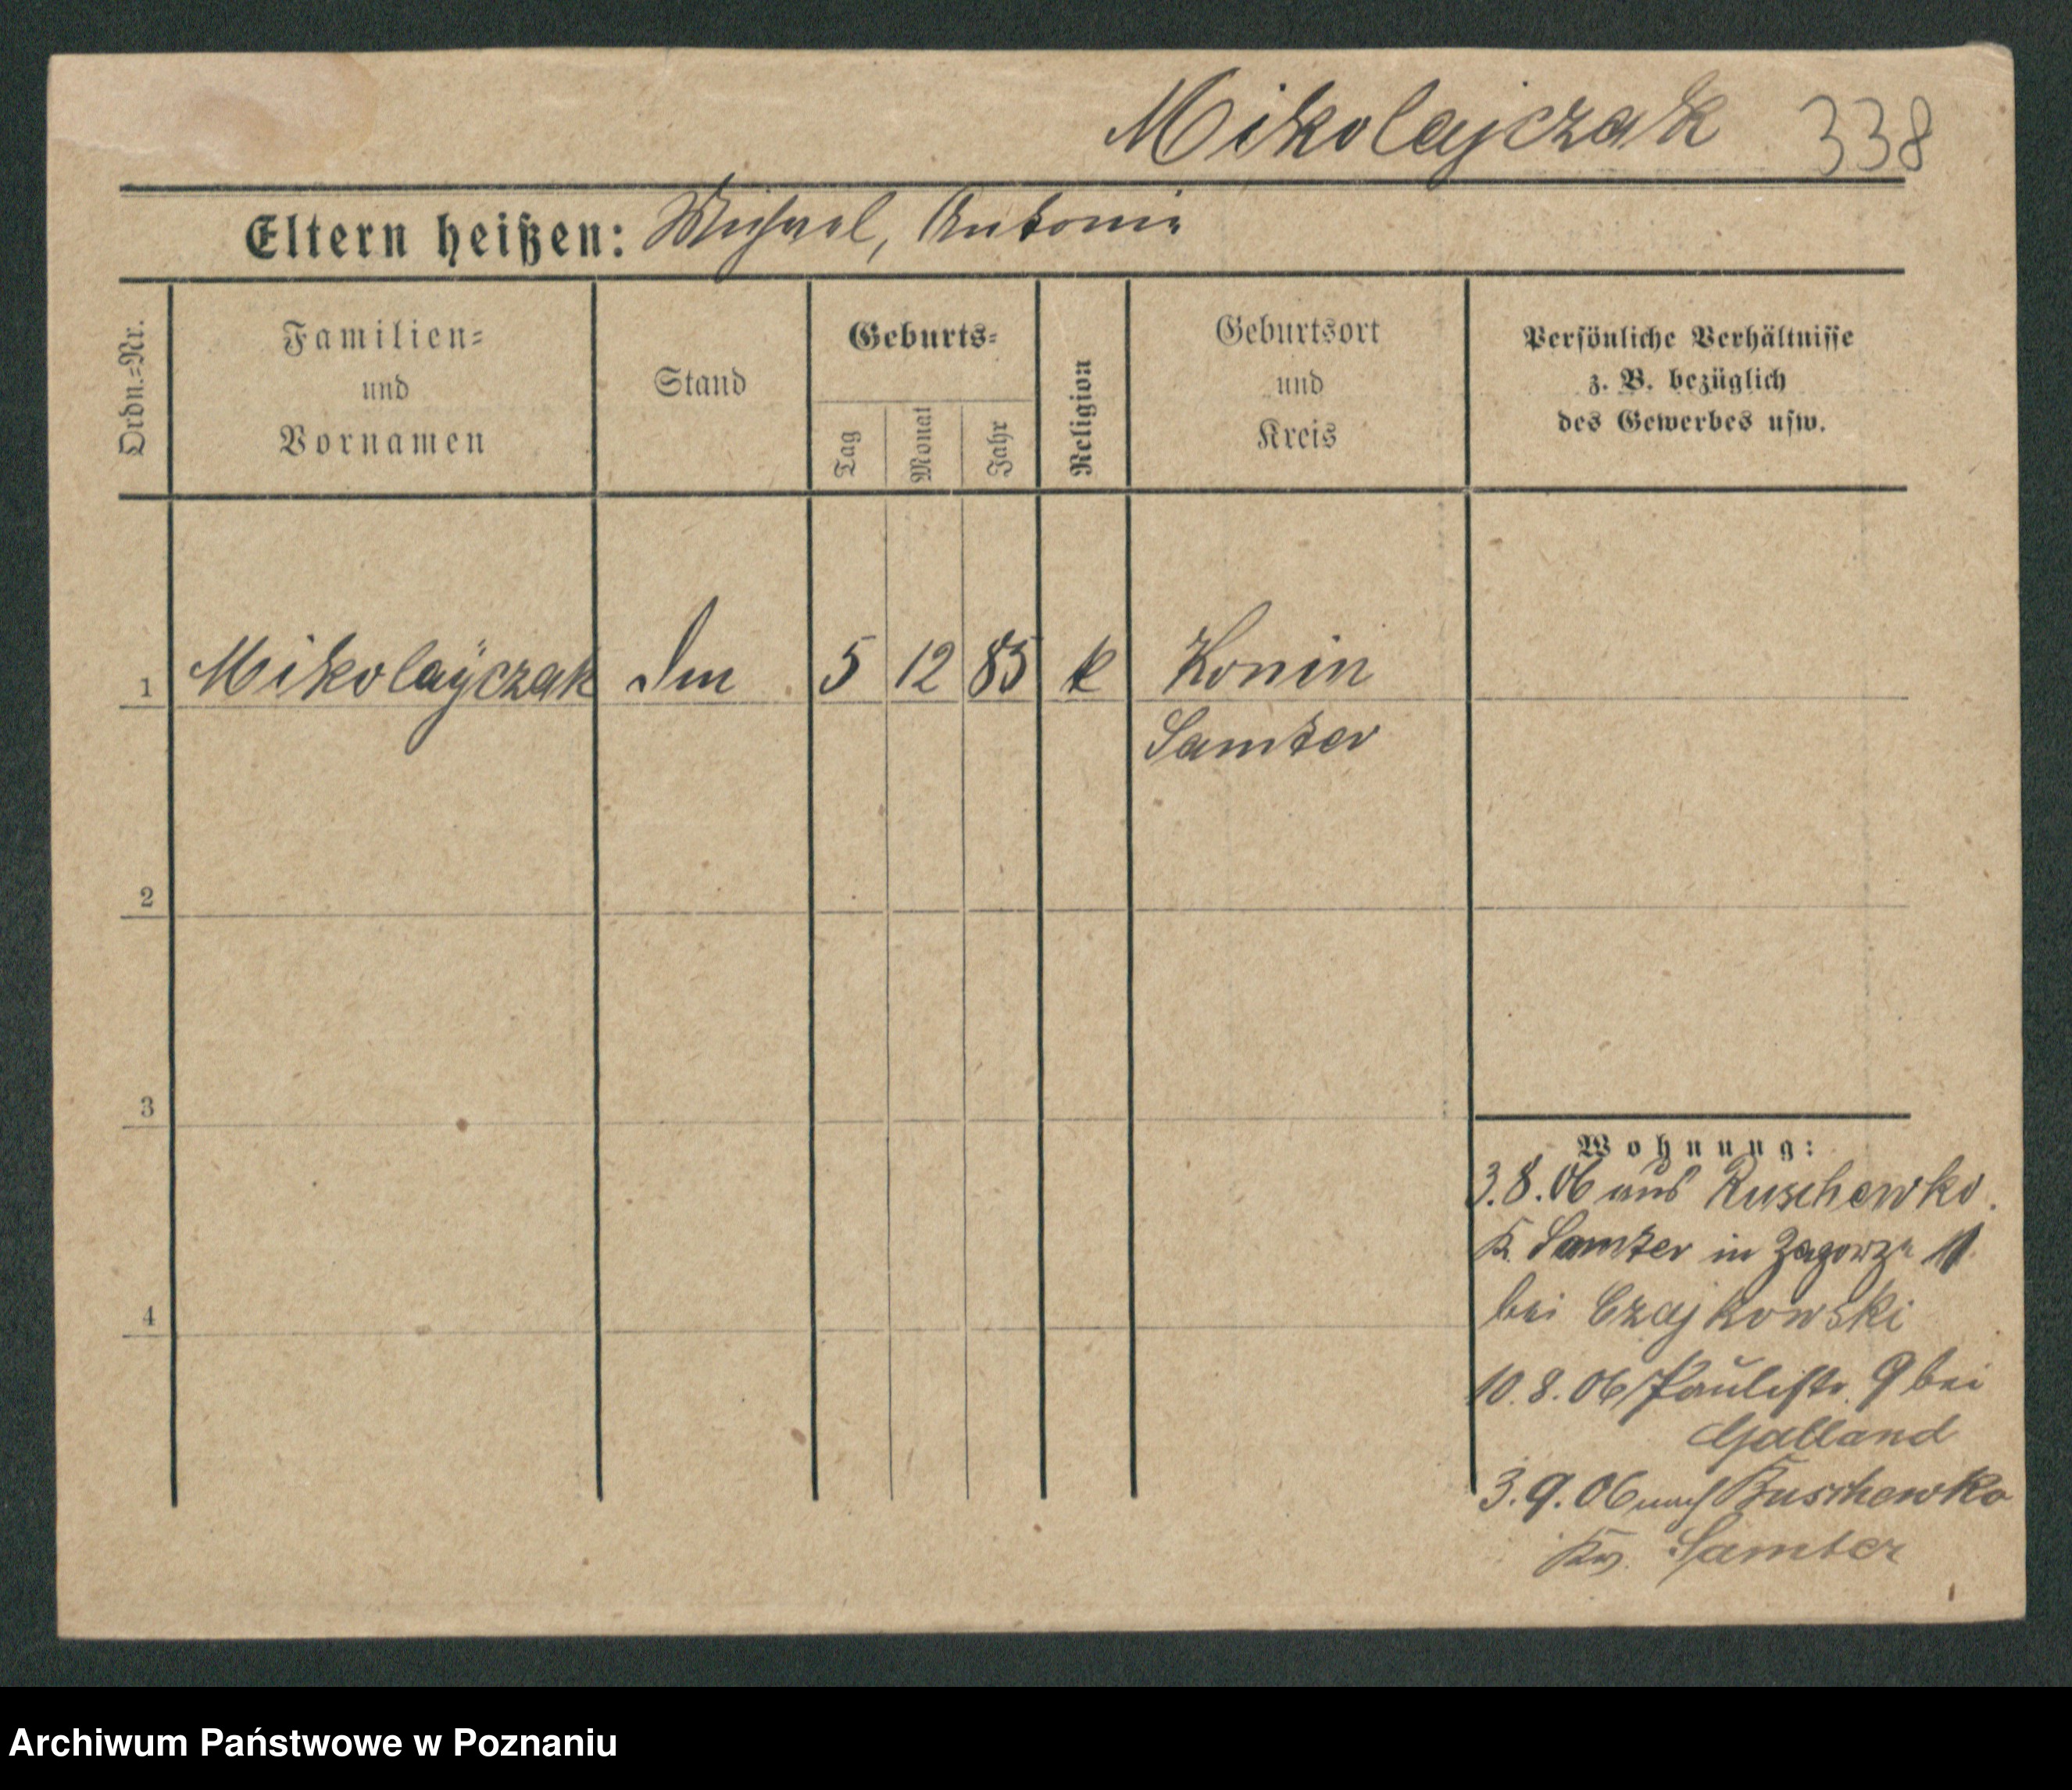 Mikolajczak 338
Eltern heißen: Michael, Antonie
Ordn.=Nr.
Familien=
und
Vornamen
Stand
Geburts=
Tag
Monat
Jahr
Religion
Geburtsort
und
Kreis
Persönliche Verhältnisse
z. B. bezüglich
des Gewerbes usw.
1 Mikolayczak 5 12 85 k Konin
Samter
2
3
4
Wohnung:
3.8.06 aus Ruschewko.
K. Samter in Zagorze 11
bei Czajkowski
10.8.06 Paulistr. 9 bei
Galland
3.9.06 nach Ruschewko
Kr. Samter
Archiwum Państwowe w Poznaniu